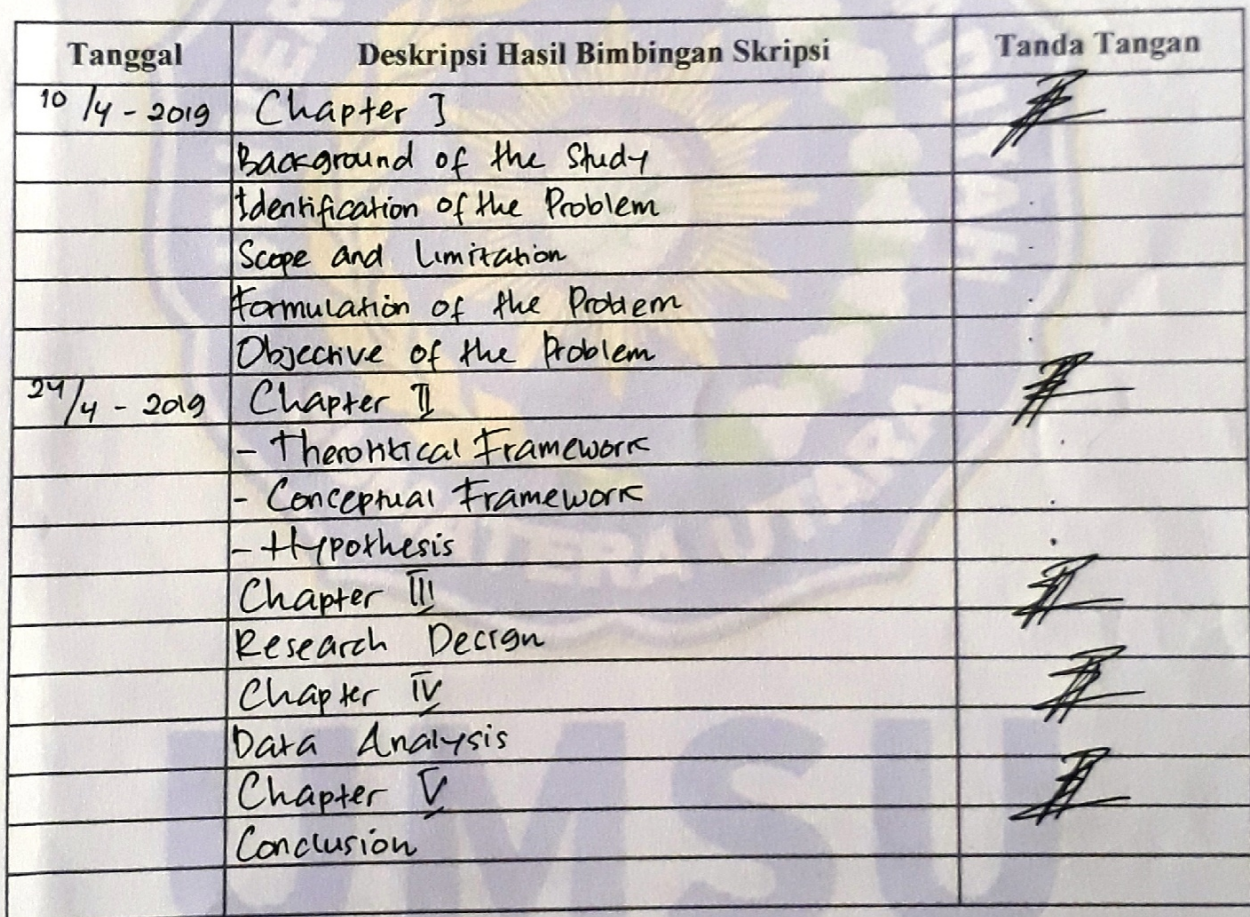 Tanggal Deskripsi Hasil Bimbingan Skripsi Tanda Tangan
10/4 - 2019 Chapter I
Background of the Study
Identification of the Problem
Scope and Limitation
Formulation of the Problem
Objective of the Problem
24/4 - 2019 Chapter II
- Theroritical Framework
- Conceptual Framework
- Hypothesis
Chapter III
Research Decign
Chapter IV
Data Analysis
Chapter V
Conclusion
UTARA
UMSU